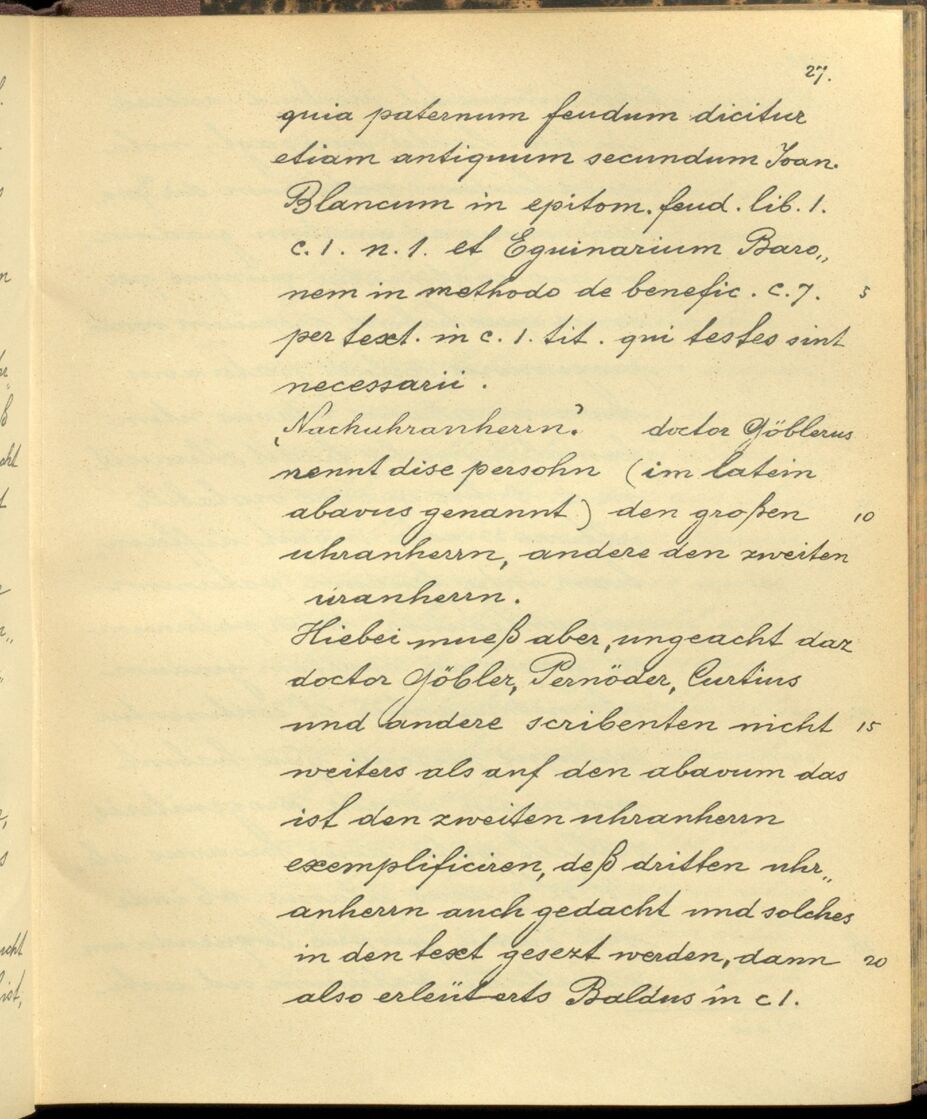 27.
quia paternum feudum dicitur
etiam antiquum secundum Joan.
Blancum in epitom. feud. lib. 1.
c. 1. n. 1. et Eguinarium Baro„
nem in methodo de benefic. c. 7. 5
per text. in c. 1. tit. qui testes sint
necessarii.
‚Nachuhranherrn.‘ doctor Göblerus
nennt dise persohn (im latein
abavus genannt) den großen 10
uhranherrn, andere den zweiten
uranherrn.
Hiebei mueß aber, ungeacht daz
doctor Göbler, Pernöder, Curtius
und andere scribenten nicht 15
weiters als auf den abavum das
ist den zweiten uhranherrn
exemplificiren, deß dritten uhr„
anherrn auch gedacht und solches
in den text gesezt werden, dann 20
also erleüterts Baldus in c 1.